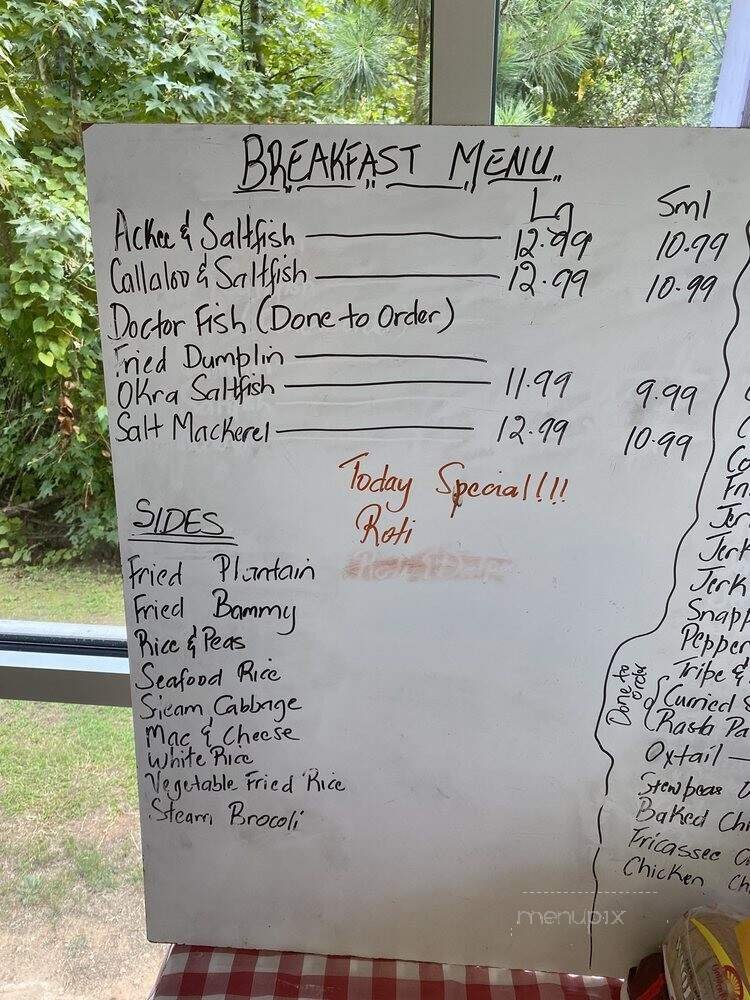 BREAKFAST MENU
Lg Sml
Ackee & Saltfish 12.99 10.99
Callaloo & Saltfish 12.99 10.99
Doctor Fish (Done to Order)
Fried Dumplin
Okra Saltfish 11.99 9.99
Salt Mackerel 12.99 10.99
Today Special!!!
Roti
SIDES
Fried Plantain
Fried Bammy
Rice & Peas
Seafood Rice
Steam Cabbage
Mac & Cheese
White Rice
Vegetable Fried Rice
Steam Brocoli
Jerk
Jerk
Snapp
Pepper
Tripe &
Done to order
Curried
Rasta Pa
Oxtail
Stewpeas
Baked Chi
Fricassee
Chicken Ch
menupix